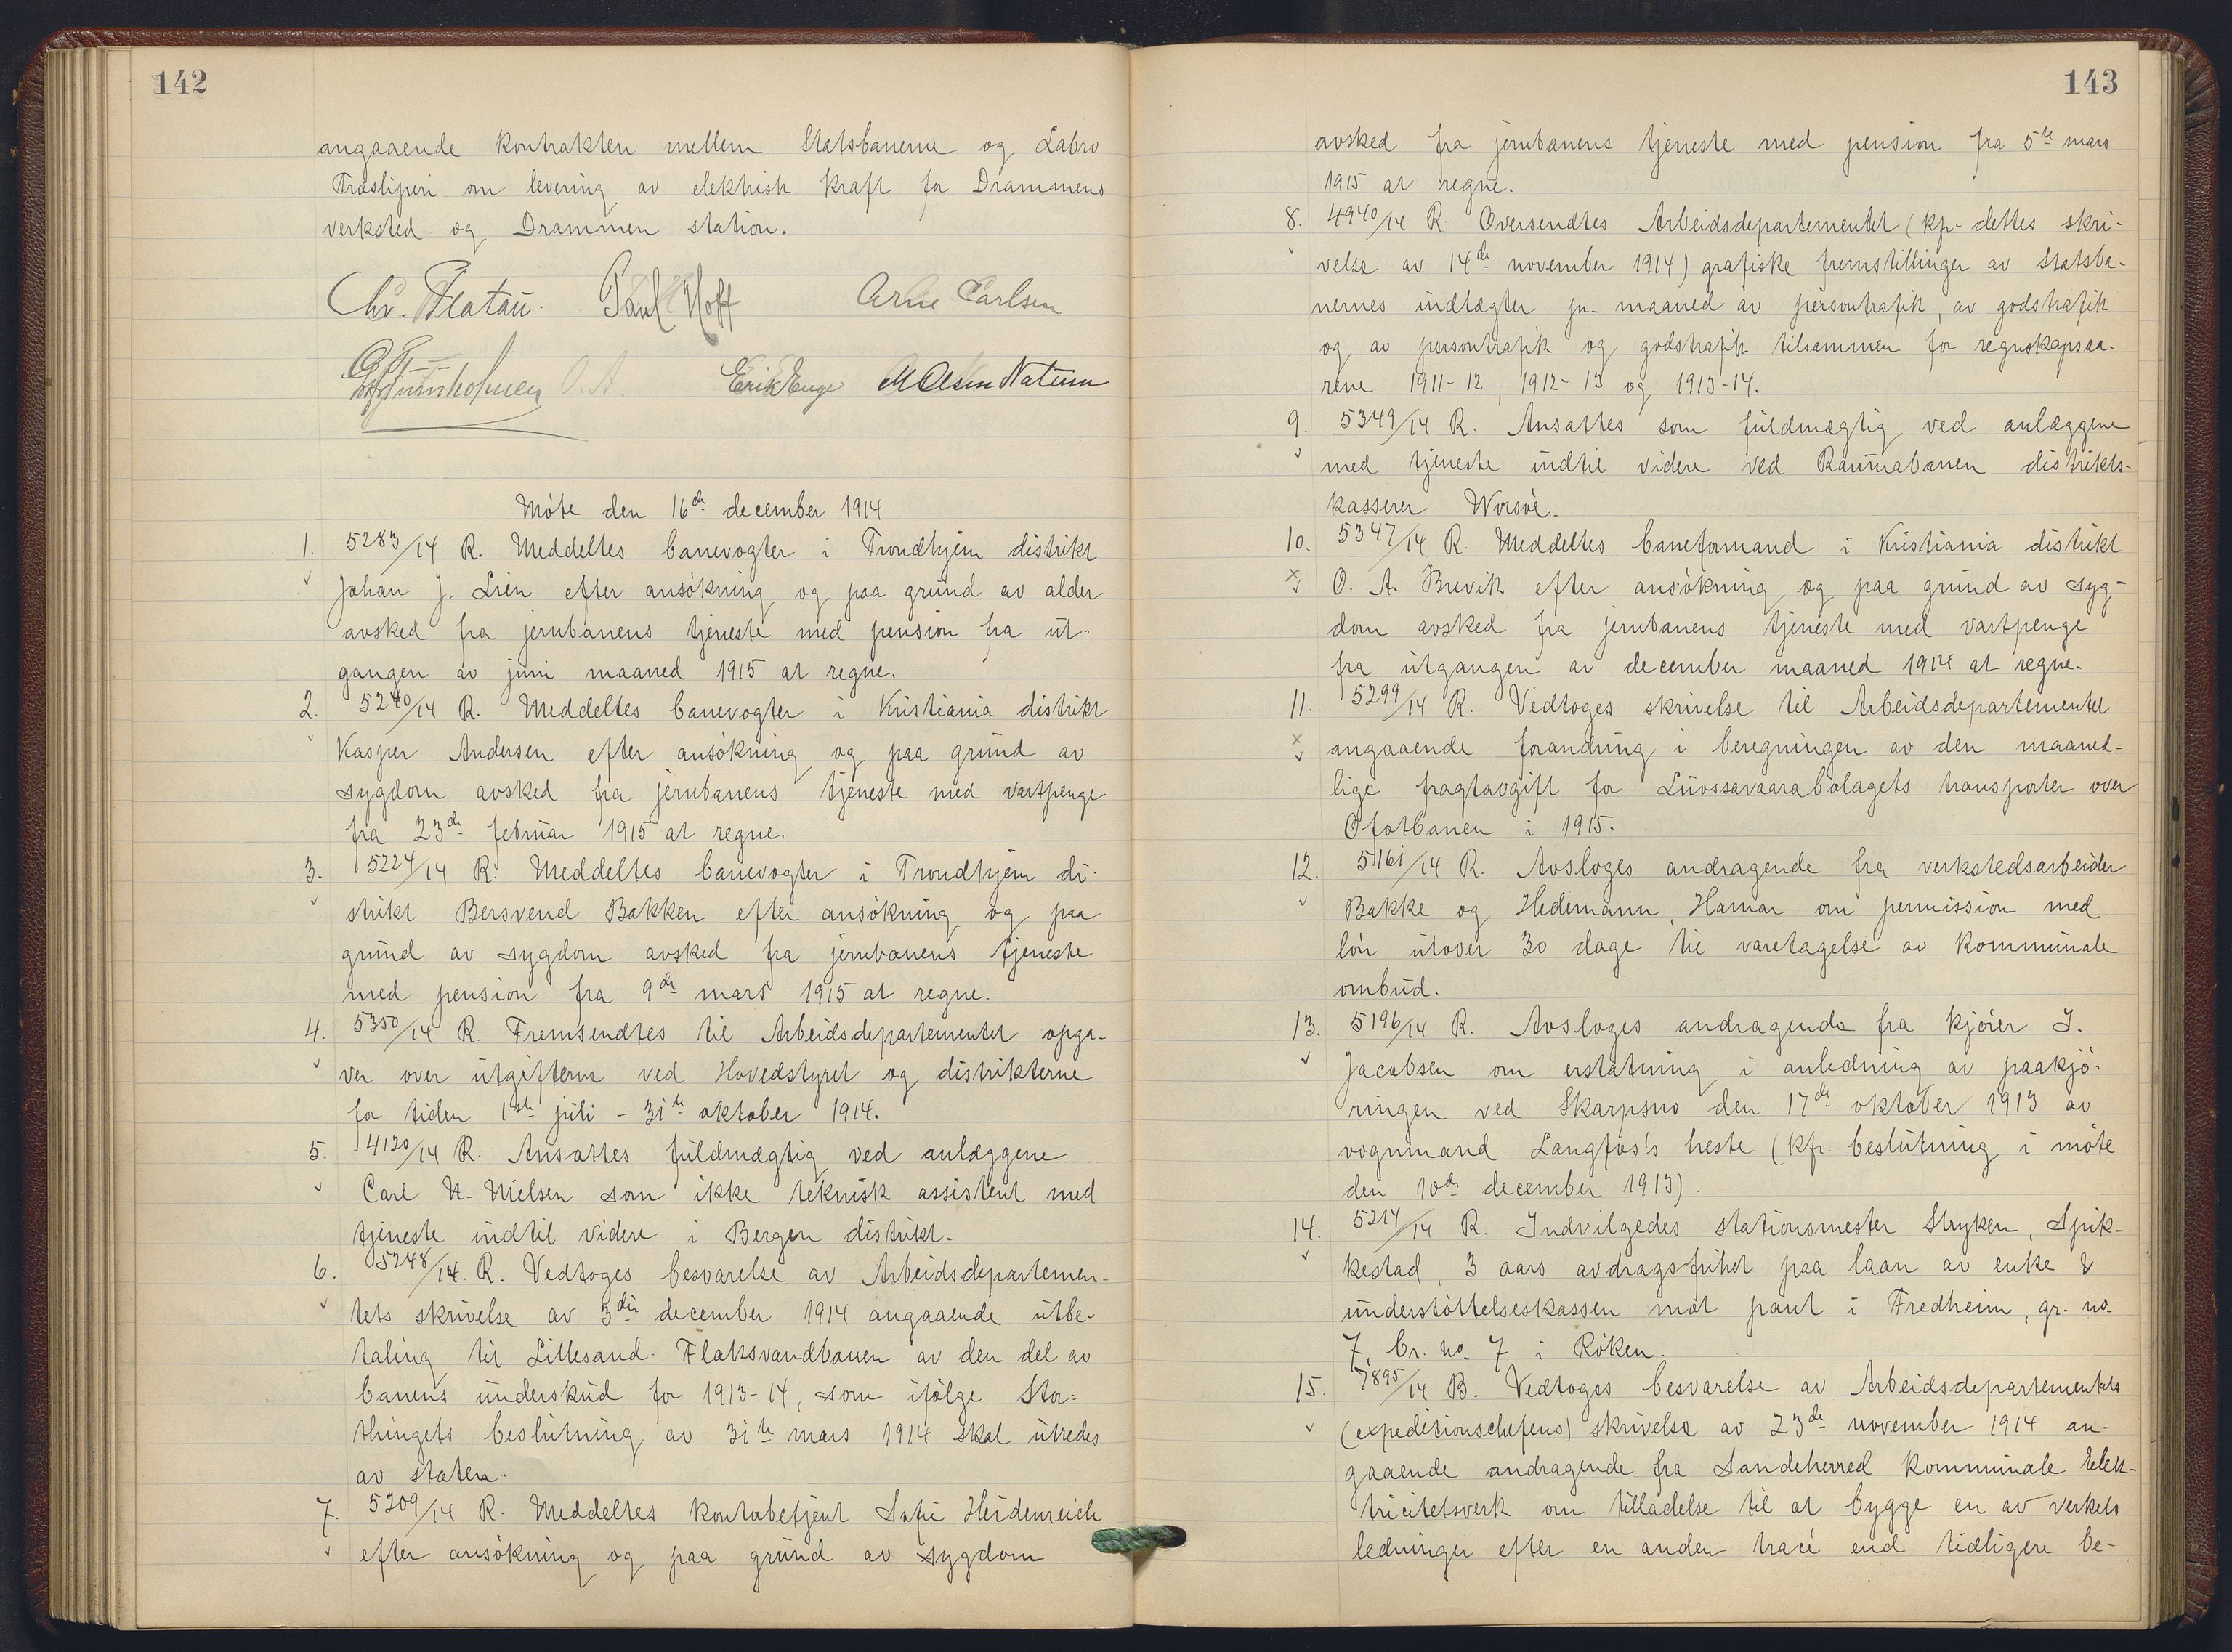 142
angaaende kontrakten mellem Statsbanerne og Labro
Træsliperi om levering av elektrisk kraft for Drammens
verksted og Drammen station.
Chr. Platou. Paul Hoff Arne Carlsen
Erik Enge M Olsen Nalum
Möte den 16de december 1914
1. 5283/14 R. Meddeltes banevogter i Trondhjem distrikt
Johan J. Lien efter ansökning og paa grund av alder
avsked fra jernbanens tjeneste med pension fra ut-
gangen av juni maaned 1915 at regne.
2. 5240/14 R. Meddeltes banevogter i Kristiania distrikt
Kasper Andersen efter ansökning og paa grund av
sygdom avsked fra jernbanens tjeneste med vartpenge
fra 23de februar 1915 at regne.
3. 5224/14 R. Meddeltes banevogter i Trondhjem di-
strikt Bersvend Bakken efter ansökning og paa
grund av sygdom avsked fra jernbanens tjeneste
med pension fra 9de mars 1915 at regne.
4. 5350/14 R. Fremsendtes til Arbeidsdepartementet opga-
ver over utgifterne ved Hovedstyret og distrikterne
for tiden 1ste juli - 31te oktober 1914.
5. 4120/14 R. Ansattes fuldmægtig ved anlæggene
Carl N. Nielsen som ikke teknisk assistent med
tjeneste indtil videre i Bergen distrikt.
6. 5248/14. R. Vedtoges besvarelse av Arbeidsdepartemen-
tets skrivelse av 3die december 1914 angaaende utbe-
taling til Lillesand-Flaksvandbanen av den del av
banens underskud for 1913-14, som ifölge Stor-
thingets beslutning av 31te mars 1914 skal utredes
av staten.
7. 5209/14 R. Meddeltes kontorbetjent Sofie Heidenreich
efter ansökning og paa grund av sygdom
143
avsked fra jernbanens tjeneste med pension fra 5te mars
1915 at regne.
8. 4940/14 R. Oversendtes Arbeidsdepartementet (kfr. dettes skri-
velse av 14de november 1914) grafiske fremstillinger av Statsba-
nernes indtægter pr. maaned av persontrafik, av godstrafik
og av persontrafik og godstrafik tilsammen for regnskapsaa-
rene 1911-12, 1912-13 og 1913-14.
9. 5349/14 R. Ansattes som fuldmægtig ved anlæggene
med tjeneste indtil videre ved Raumabanen distrikts-
kasserer Worsöe.
10. 5347/14 R. Meddeltes baneformand i Kristiania distrikt
O. A. Brevik efter ansökning og paa grund av syg-
dom avsked fra jernbanens tjeneste med vartpenge
fra utgangen av december maaned 1914 at regne.
11. 5299/14 R. Vedtoges skrivelse til Arbeidsdepartementet
angaaende forandring i beregningen av den maaned-
lige fragtavgift for Luossavaarabolagets transporter over
Ofotbanen i 1915.
12. 5161/14 R. Avsloges andragende fra verkstedsarbeider
Bakke og Hedemann, Hamar om permission med
lön utover 30 dage til varetagelse av kommunale
ombud.
13. 5196/14 R. Avsloges andragende fra kjörer J.
Jacobsen om erstatning i anledning av paakjö-
ringen ved Skarpsno den 17de oktober 1913 av
vognmand Langfos's heste (kfr. beslutning i möte
den 10de december 1913).
14. 5214/14 R. Indvilgedes stationsmester Stryken, Spik-
kestad, 3 aars avdragsfrihet paa laan av enke &
understöttelseskassen mot pant i Fredheim, gr. no.
7, br. no. 7 i Röken.
15. 7895/14 B. Vedtoges besvarelse av Arbeidsdepartementets
(expeditionschefens) skrivelse av 23de november 1914 an-
gaaende andragende fra Sandeherred kommunale elek-
tricitetsverk om tilladelse til at bygge en av verkets
ledninger efter en anden tracé end tidligere be-